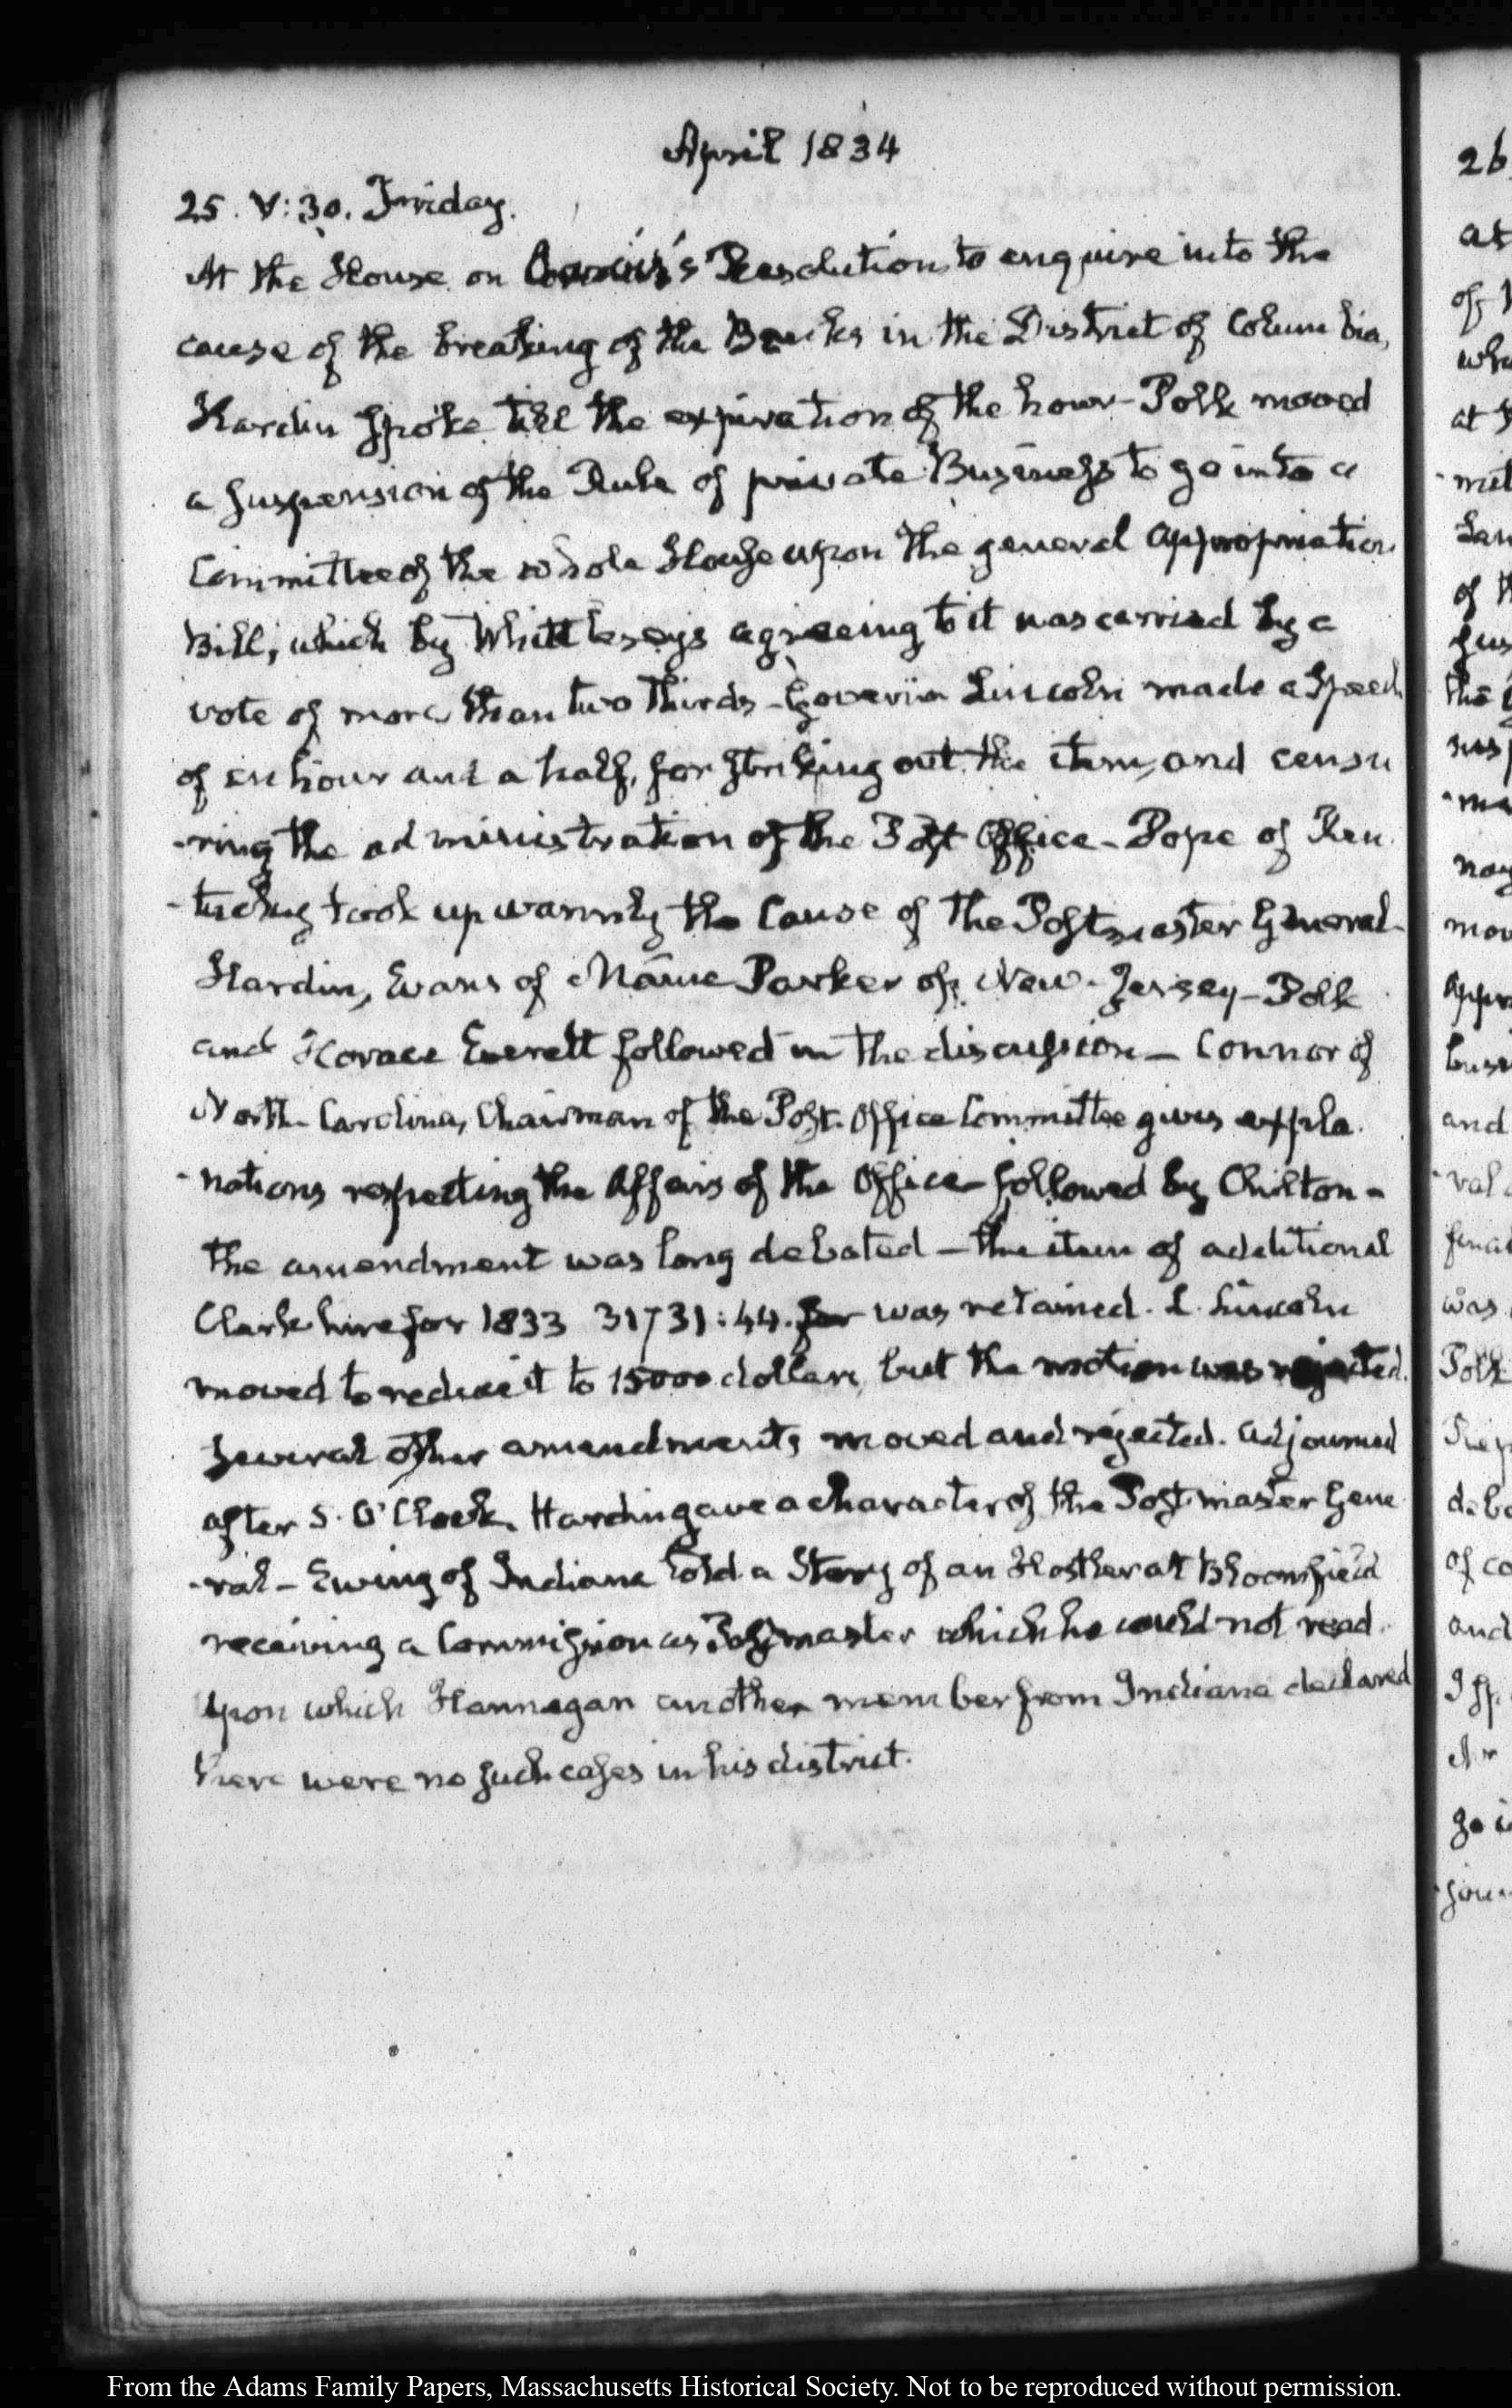 April 1834
25. V:30. Friday.
At the House on Resolution to enquire into the
cause of the breaking of the Banks in the District of Columbia,
Hardin spoke till the expiration of the hour - Polk moved
a suspension of the Rule of private Business to go into a
Committee of the whole House upon the general appropriation
Bill, which by Whittlesey's agreeing to it was carried by a
vote of more than two thirds - Governor Lincoln made a Speech
of an hour and a half, for striking out the item, and censu
-ring the administration of the Post Office - Pope of Ken
-tucky took up warmly the Cause of the Postmaster General -
Hardin, Evans of Maine Parker of New-Jersey - Polk
and Horace Everett followed in the discussion - Connor of
North-Carolina, Chairman of the Post-Office Committee gives expla
-nations respecting the Affairs of the Office - followed by Chilton -
The amendment was long debated - the item of additional
Clerk hire for 1833 31731:44. for was retained. L. Lincoln
moved to reduce it to 15000 dollars, but the motion was rejected.
Several other amendments moved and rejected. Adjourned
after 5. O'Clock. Hardin gave a character of the Postmaster Gene
-ral - Ewing of Indiana told a Story of an Hostler at Bloomfield
receiving a Commission as Postmaster which he could not read.
Upon which Hannegan another member from Indiana declared
there were no such cases in his district.
26
at
of
wh
at
of
the
nay
mov
and
was
Polk
deb
of co
and
go i
From the Adams Family Papers, Massachusetts Historical Society. Not to be reproduced without permission.